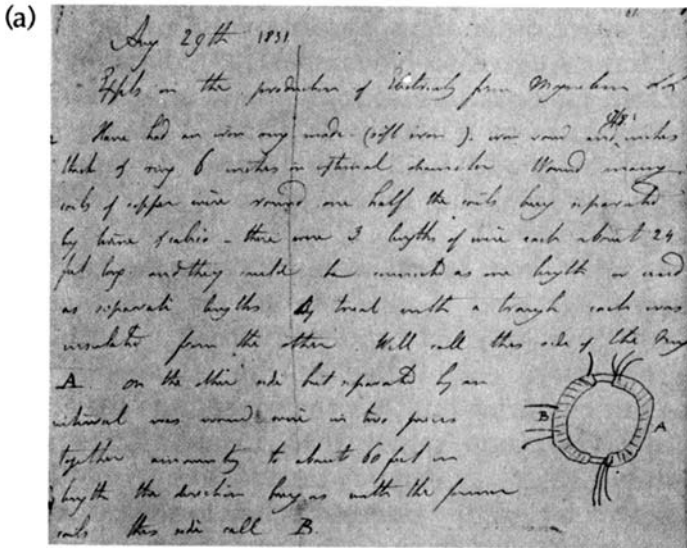 (a)
Aug 29th 1831
Expts on the production of Electricity from Magnetism &c &c
Have had an iron ring made (soft iron), iron round and 7/8 inches
thick & ring 6 inches in external diameter. Wound many
coils of copper wire round one half the coils being separated
by twine & calico - there were 3 lengths of wire each about 24
feet long and they could be connected as one length or used
as separate lengths By trial with a trough each was
insulated from the other Will call this side of the ring
A on the other side but separated by an
interval was wound wire in two pieces
together amounting to about 60 feet in
length the direction being as with the former
coils this side call B.
B
A